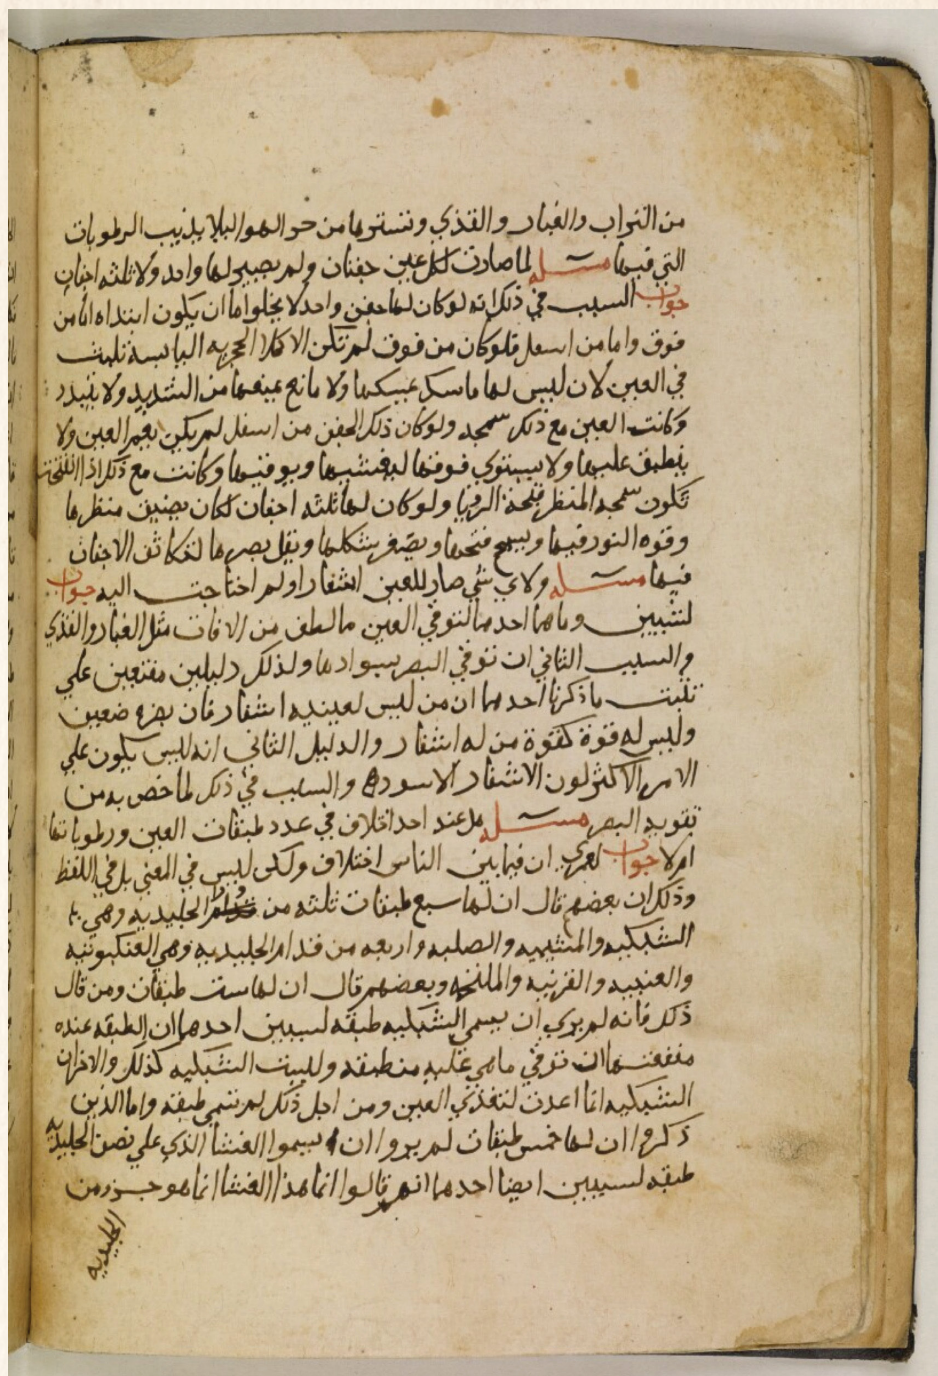 من التراب والغبار والقذي وتسترها من حر الهوا ليلا يذيب الرطوبات
التي فيها مسله لما صارت لكل عين جفنان ولم يصير لها واحد ولا ثلثه اجفان
جواب السبب في ذلك انه لو كان لها جفن واحد لا يخلوا اما ان يكون ابتداه اما من
فوق واما من اسفل فلو كان من فوق لم تكن الا اليابسه تلبث
في العين لان ليس لها ماسك يمسكها ولا مانع يمنعها من ولا
وكانت العين مع ذلك سمجه ولو كان ذلك الجفن من اسفل لم يكن يغم العين ولا
ينطبق عليها ولا يستوي فوقها ليغشيها ويوقيها وكانت مع ذلك اذا انفتحت
تكون سمجه المنظر قبحة ولو كان لها ثلثه اجفان لكان يضيق منظرها
وقوه النور فيها ويسمج فتحها ويصغر شكلها ويقل بصرها لتكاثف الاجفان
فيها مسله ولاي شي صار للعين اشفار او لم احتاجت اليه جواب
لشيين وما هما احدهما لتوقي العين ما لطف من الافات مثل الغبار والقذي
والسبب الثاني ان توقي البصر بسوادها ولذلك دليلين مقنعين علي
تثبت ما ذكرنا احدهما ان من ليس لعينيه اشفار فان بصره ضعيف
وليس له قوة كقوة من له اشفار والدليل الثاني انه ليس يكون علي
الامر الاكثر لون الاشفار الا سود والسبب في ذلك لما خص به من
تقويه البصر مسله هل عند احد اختلاف في عدد طبقات العين ورطوباتها
ام لا جواب لعمري ان فيما بين الناس اختلاف ولكن ليس في المعني بل في اللفظ
وذلك ان بعضهم قال ان لها سبع طبقات ثلثه من ورا الجليديه وهي
الشبكيه والمشيميه والصلبه واربعه من قدام الجليديه وهي العنكبوتيه
والعنبيه والقرنيه والملتحمه وبعضهم قال ان لها ست طبقات ومن قال
ذلك فانه لم يري ان يسمي الشبكيه طبقه لسببين احدهما ان الطبقه عنده
منفعتها ان توقي ما هي عليه منطبقه وليست الشبكيه كذلك والاخر ان
الشبكيه انما اعدت لتغذي العين ومن اجل ذلك لم تسمي طبقه واما الذين
ذكروا ان لها خمس طبقات لم يروا ان يسموا الغشا الذي علي نصف الجليديه
طبقه لسببين ايضا احدهما انهم قالوا انما هذا الغشا انما هو جزو من
الجليديه